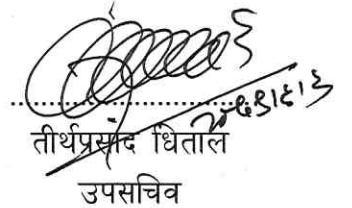 तीर्थप्रसाद धिताल
उपसचिव